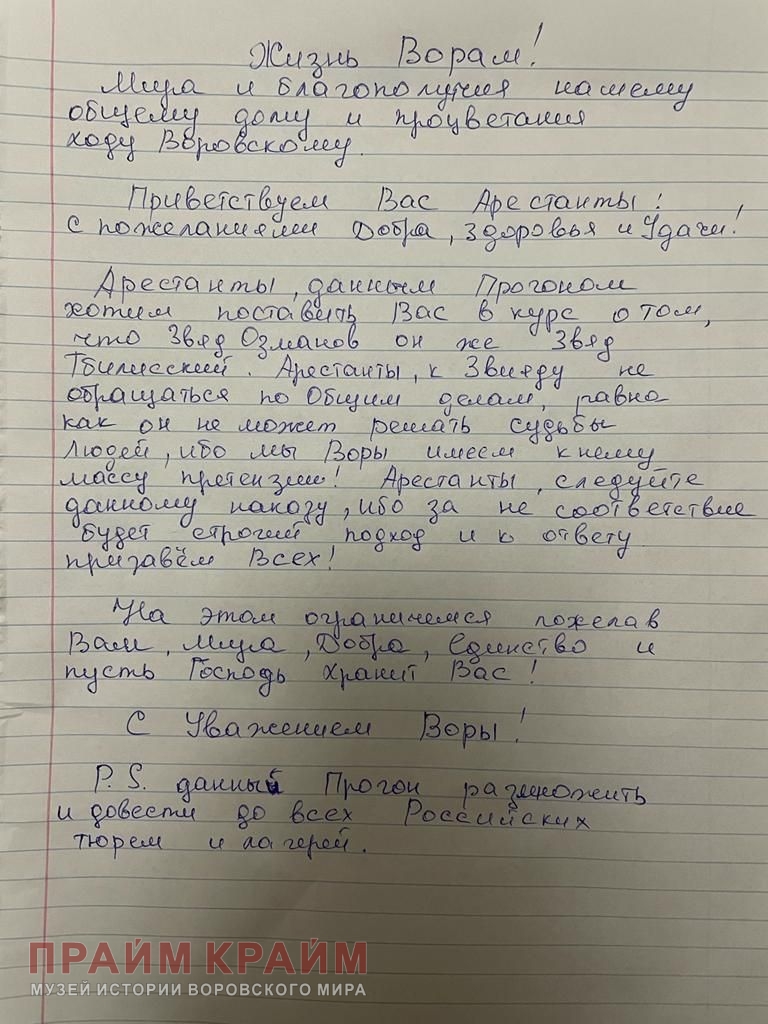 Жизнь Ворам!
Мира и благополучия нашему
общему дому и процветания
ходу Воровскому.
Приветствуем Вас Арестанты!
с пожеланиями Добра, Здоровья и Удачи!
Арестанты, данным Прогоном
хотим поставить Вас в курс о том,
что Звяд Озманов он же Звяд
Тбилисский. Арестанты, к Звияду не
обращаться по Общим делам, равно
как он не может решать судьбы
людей, ибо мы Воры имеем к нему
массу претензию! Арестанты, следуйте
данному наказу, ибо за не соответствие
будет строгий подход и к ответу
призавём Всех!
На этом ограничемся пожелав
Вам, Мира, Добра, Единство и
пусть Господь хранит Вас!
С Уважением Воры!
P.S. данный Прогон размножить
и довести до всех Российских
тюрем и лагерей.
ПРАЙМ КРАЙМ
МУЗЕЙ ИСТОРИИ ВОРОВСКОГО МИРА